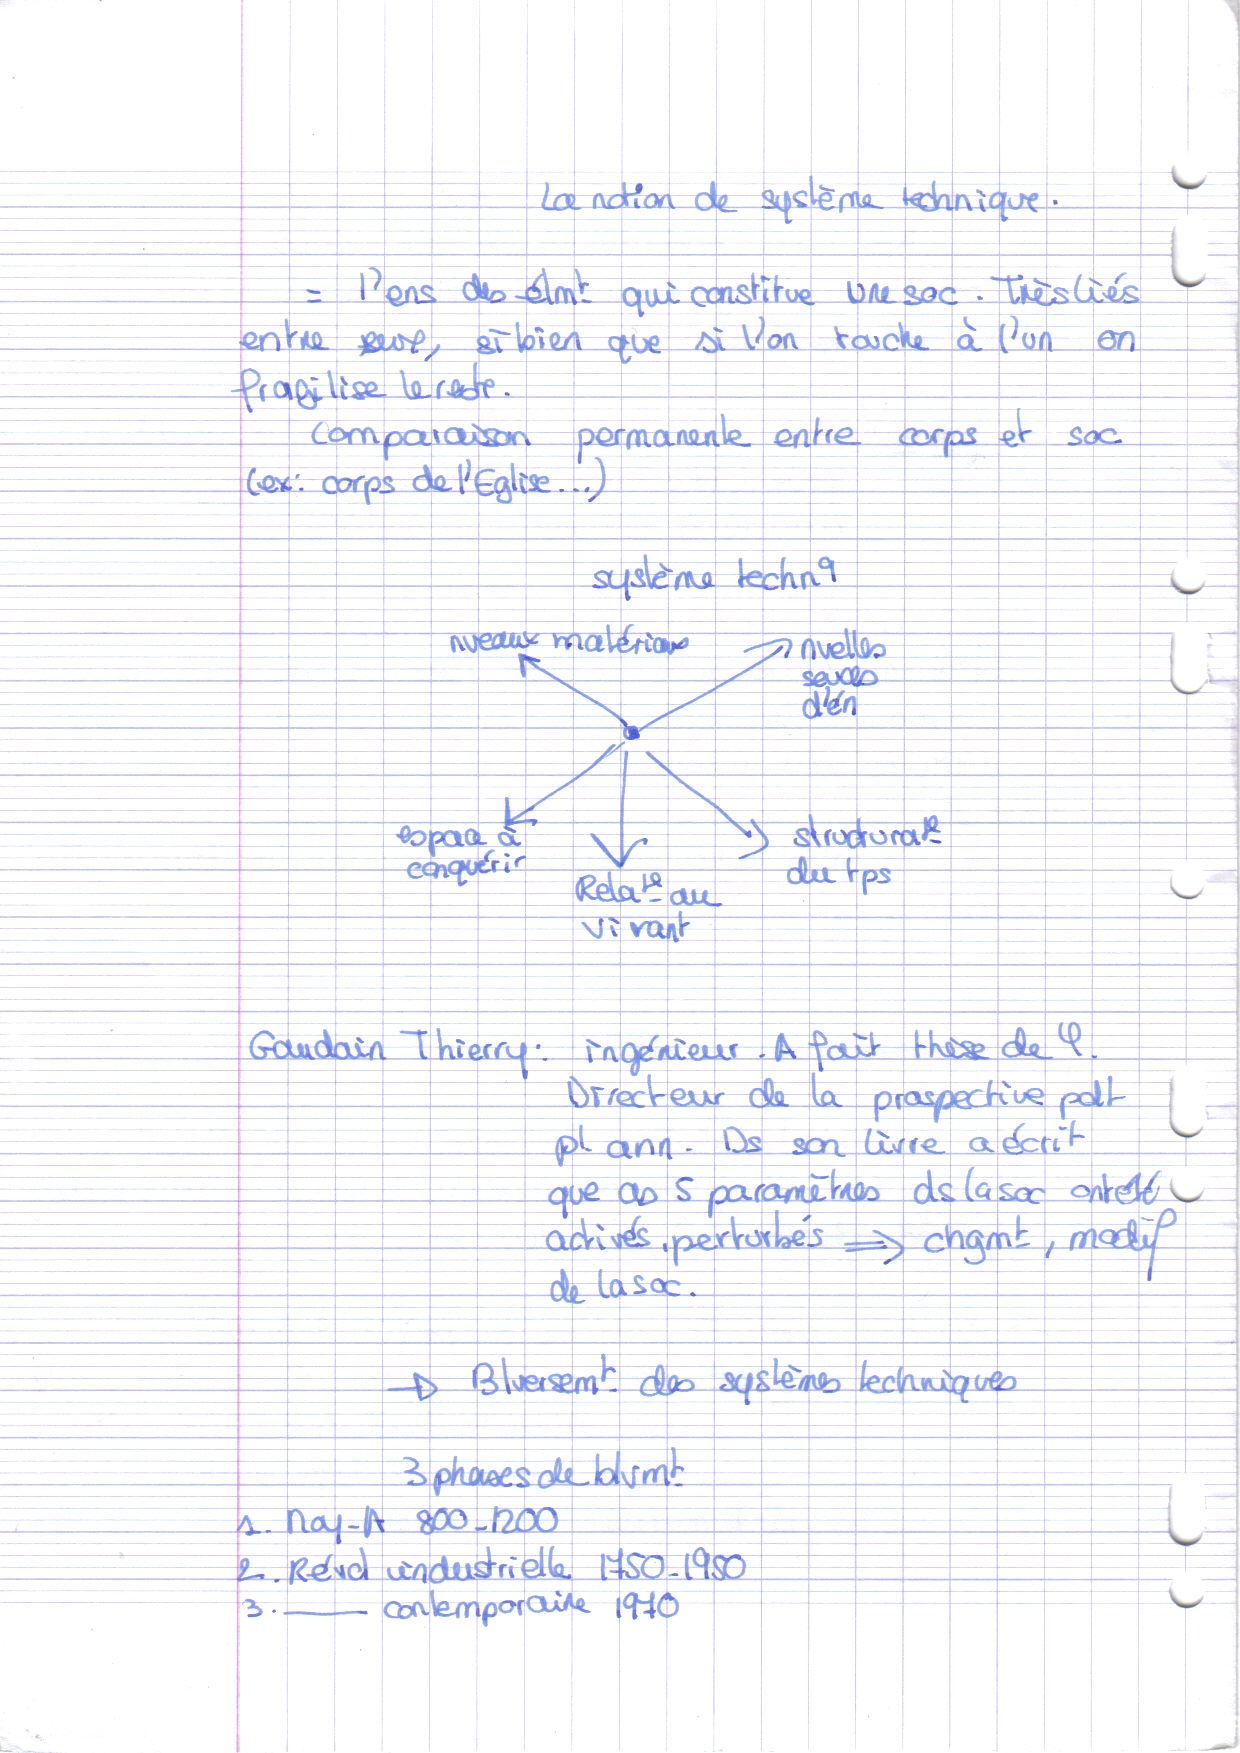 La notion de système technique.
= l'ens des élmt qui constitue une soc. Très liés
entre eux, si bien que si l'on touche à l'un on
fragilise le reste.
Comparaison permanente entre corps et soc
(ex: corps de l'Eglise...)
système technq
nveaux matériaux
nvelles
sources
d'én
espace à
conquérir
Relat° au
vivant
structurat°
du tps
Gaudain Thierry: ingénieur. A fait thèse de φ.
Directeur de la prospective pdt
pl ann. Ds son livre a écrit
que ces 5 paramètres ds la soc ont été
activés, perturbés ⇒ chgmt, modif
de la soc.
→ Blversemt des systèmes techniques
3 phases de blvmt
1. Moy-A 800-1200
2. Révol industrielle 1750-1950
3. —— contemporaine 1970